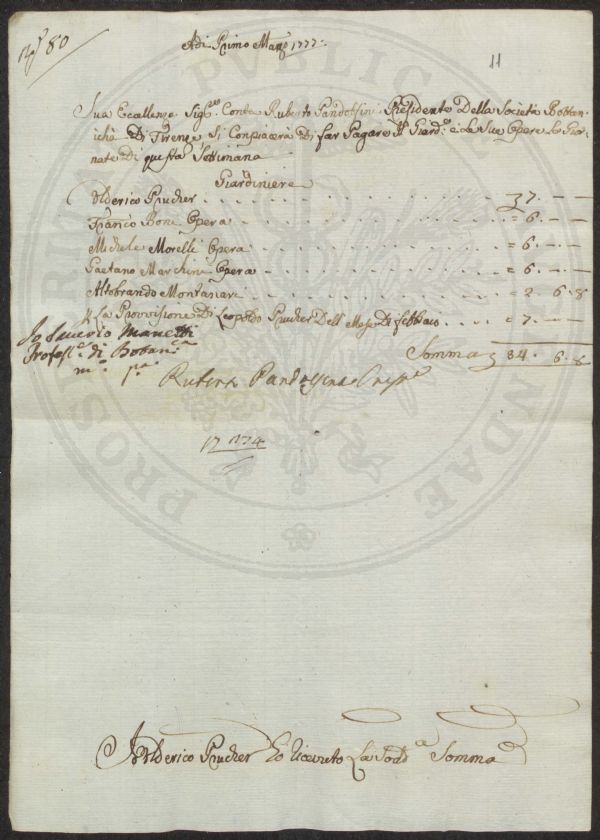 N° 80
Adi Primo Marzo 1777:
11
Sua Eccellenza Sig:re Conte Ruberto Pandolfini Presidente Della Società Bottan-
icha Di Firenze Si Conpiacerà Di far Pagare Il Giard:e e La Sue Opere Le Gior-
nate Di questa Settimana
Giardiniere
Ulderico Prucher . . . . 7. — —
Franco Boni Opera . . . . = 6. — —
Michele Morelli Opera . . . . = 6. — —
Gaetano Marchini Opera . . . . = 6. — —
Aldobrando Montanari . . . . = 2 6. 8
P La Provvisione Di Leopoldo Prucher Dell Mese Di Febbraio . . . = 7. — —
Somma 34. 6. 8
Io Saverio Manetti
Profess.e di Botan:ca
m.o p.a
Ruberto Pandolfini Presid.e
Io Ulderico Prucher Ho Ricevuto La Sodd.a Somma
PUBLICAE
PROSPERITATI